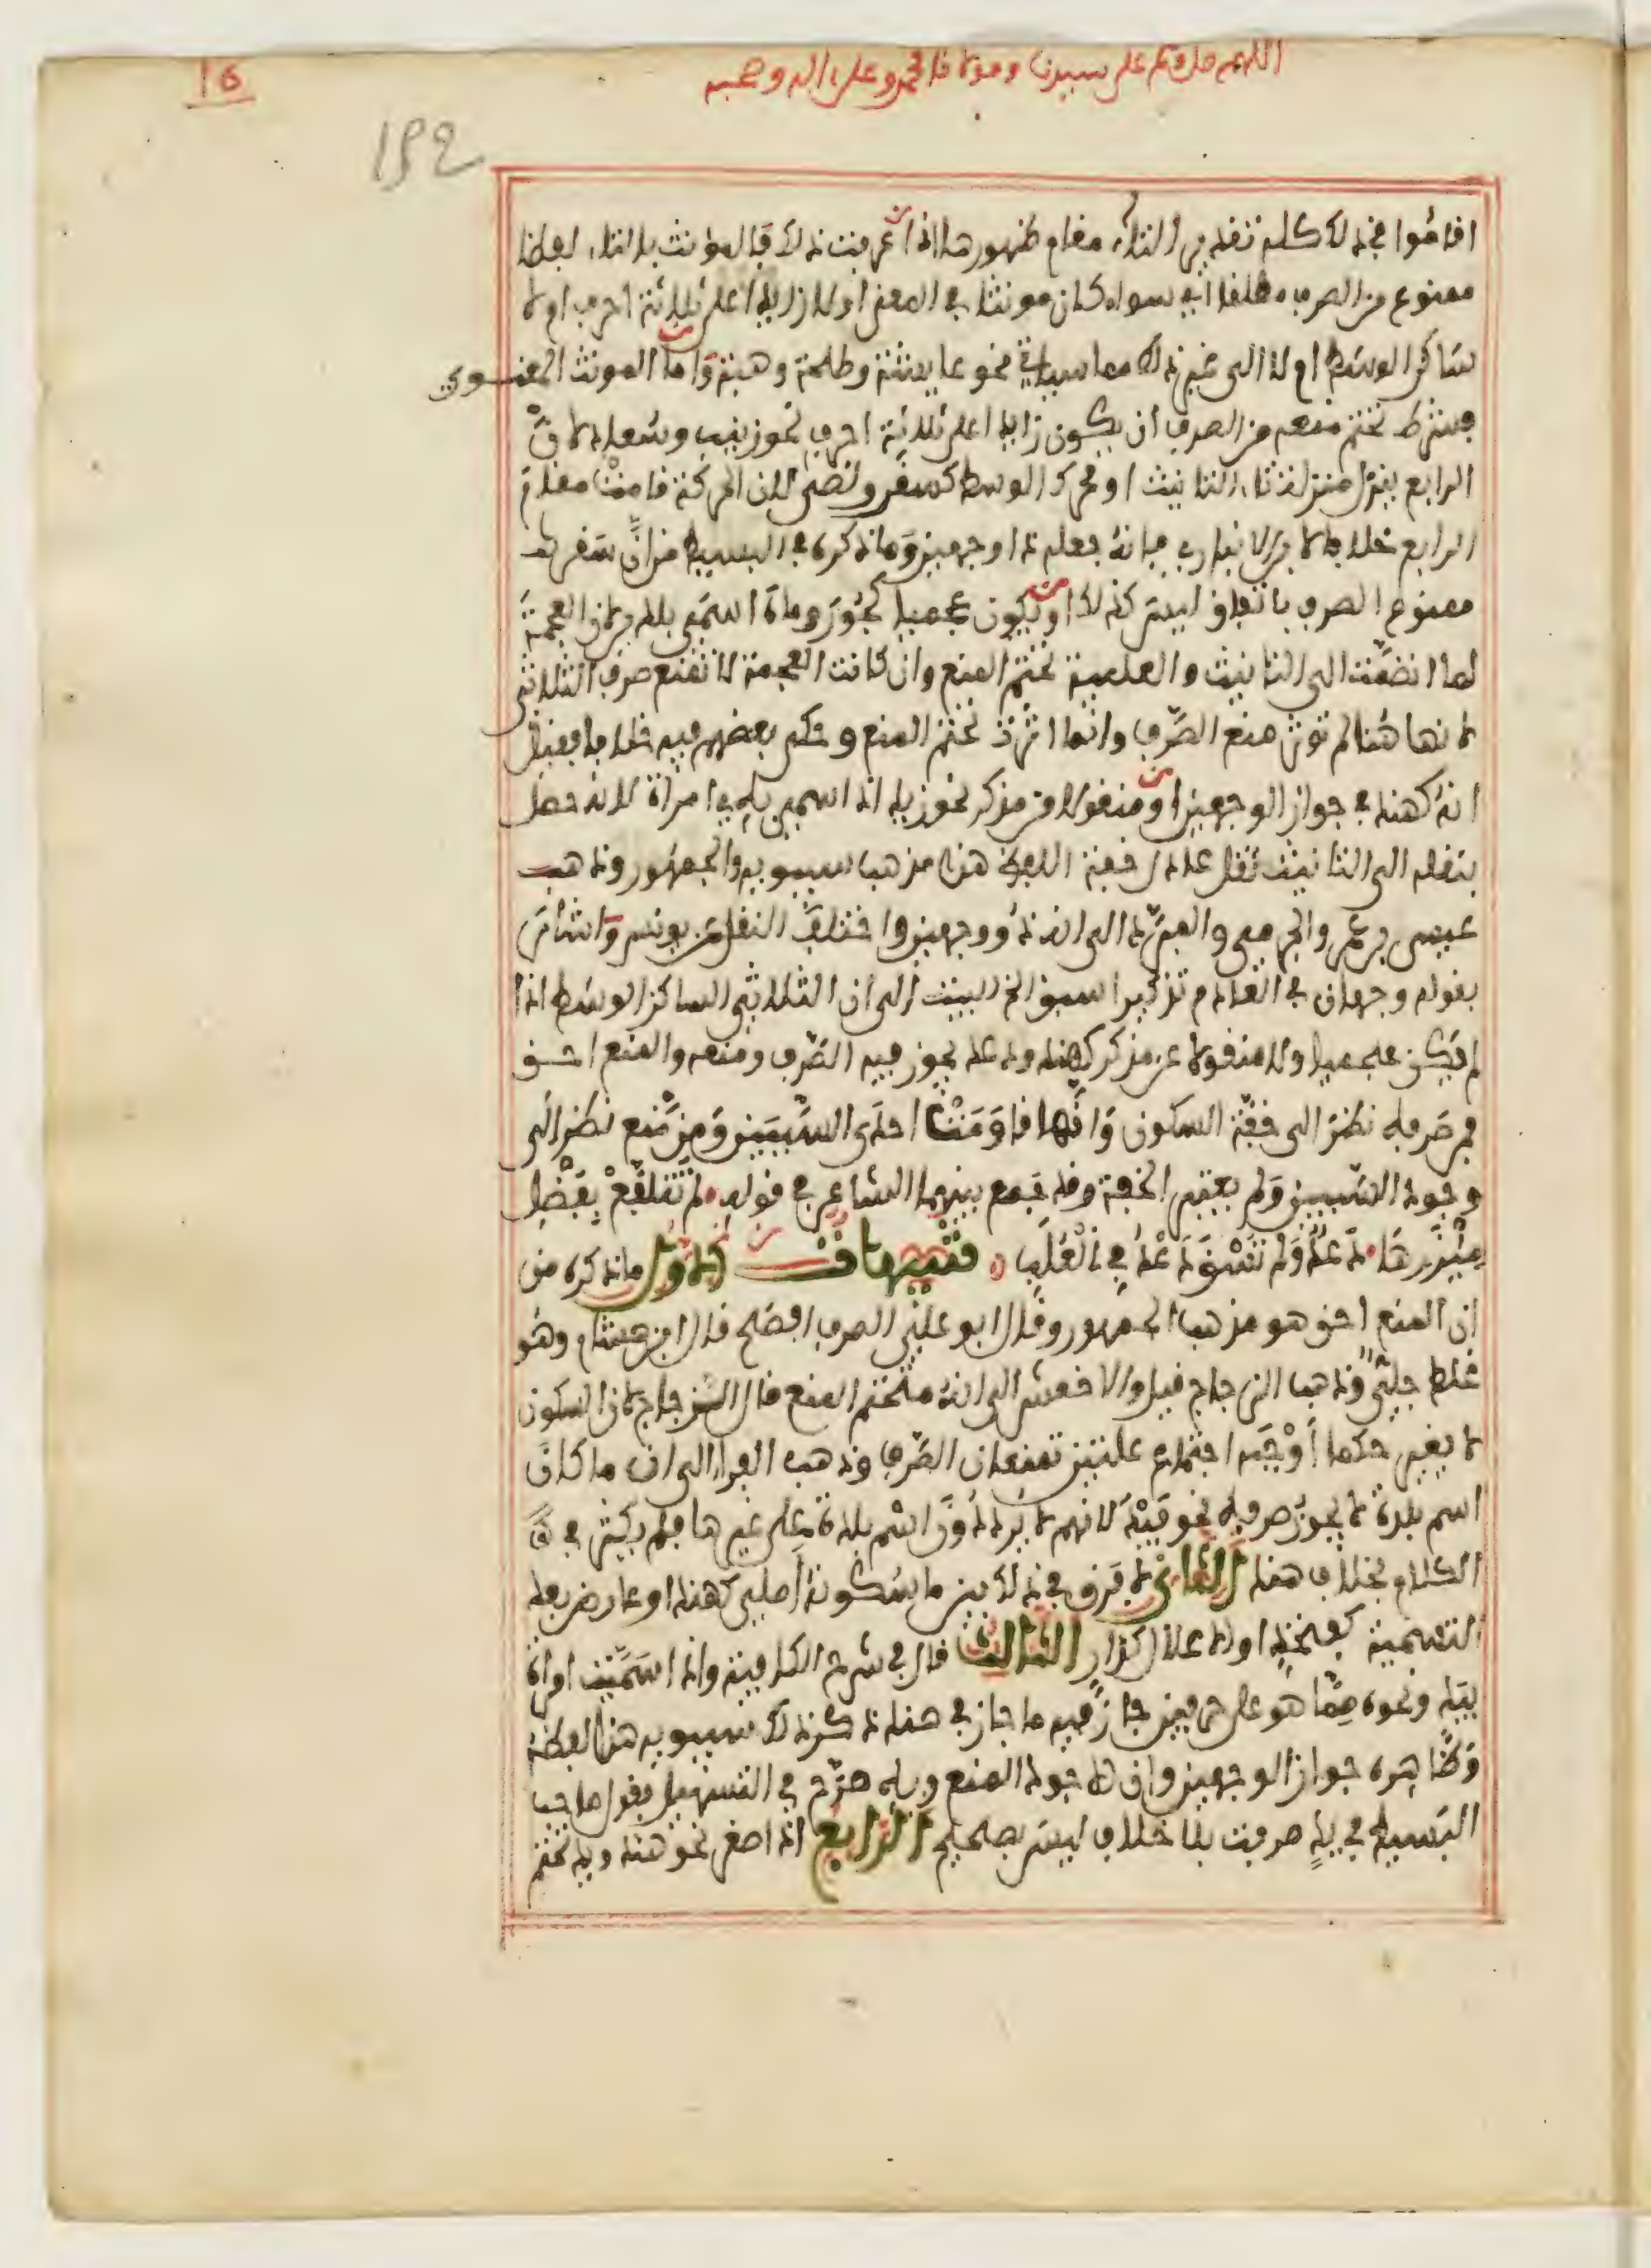 اللهم صل وسلم على سيدنا ومولانا محمد وعلى اله وصحبه
16
192
اقاموا في ذلك كله تقدير التاء مقام ظهورها اذا عرفت ذلك فالمؤنث بالتاء لفظا
ممنوع من الصرف مطلقا اي سواء كان مونثا في المعنى اولا زايدا على ثلاثة احرف اولا
ساكن الوسط او لا الى غير ذلك مما سياتي نحو عايشة وطلحة وهبة واما المونث المعنوي
فشرط تحتم منعه من الصرف ان يكون زايدا على ثلاثة احرف نحو زينب وسعاد لان
الرابع ينزل منزلة تاء التانيث او محرك الوسط كسقر ولضى لان الحركة قامت مقام
الرابع خلافا لابن الانباري فانه جعله ذا وجهين وما ذكره في البسيط من ان سقر
ممنوع الصرف باتفاق ليس كذلك او يكون عجميا كجور وماه اسمي بلد لان العجمة
لما انضمت الى التانيث والعلمية تحتم المنع وان كانت العجمة لا تمنع صرف الثلاثي
لانها هنا لم توثر منع الصرف وانما اثرت تحتم المنع وحكى بعضهم فيه خلافا فقيل
انه كهند في جواز الوجهين او منقولا من مذكر نحو زيد اذا سمي به امراة لانه حصل
بنقله الى التانيث ثقل عادل خفة اللفظ هذا مذهب سيبويه والجمهور وذهب
عيسى بن عمر والجرمي والمبرد الى انه ذو وجهين واختلف النقل عن يونس واشار
بقوله وجهان في العادم تذكيرا سبق الخ البيت الى ان الثلاثي الساكن الوسط اذا
لم يكن عجميا ولا منقولا عن مذكر كهند ودعد يجوز فيه الصرف ومنعه والمنع احق
فمن صرفه نظر الى خفة السكون وانها قاومت احدى السببين ومن منع نظر الى
وجود السببين ولم يعتبر الخفة وقد جمع بينهما الشاعر في قوله لم تتلفع بفضل
مئزرها دعد ولم تسق دعد في العلب تنبيهات الاول ما ذكره من
ان المنع احق هو مذهب الجمهور وقال ابو علي الصرف افصح قال ابن هشام وهو
غلط جلي وذهب الزجاج قيل والاخفش الى انه متحتم المنع قال الزجاج لان السكون
لا يغير حكما اوجبه اجتماع علتين تمنعان الصرف وذهب الفراء الى ان ما كان
اسم بلدة لا يجوز صرفه نحو فيد لانهم لا يرددون اسم بلدة على غيرها فلم يكثر في
الكلام بخلاف هند الثاني لا فرق في ذلك بين ما سكونه اصلي كهند او عارض بعد
التسمية كفخذ او الاعلال كدار الثالث قال في شرح الكافية واذا سميت امراة
بيد ونحوه مما هو على حرفين جاز فيه ما جاز في هند ذكر ذلك سيبويه هذا لفظه
وظاهره جواز الوجهين وان الاجود المنع وبه صرح في التسهيل فقول صاحب
البسيط في يد صرفت بلا خلاف ليس بصحيح الرابع اذا صغر نحو هند ويد تحتم